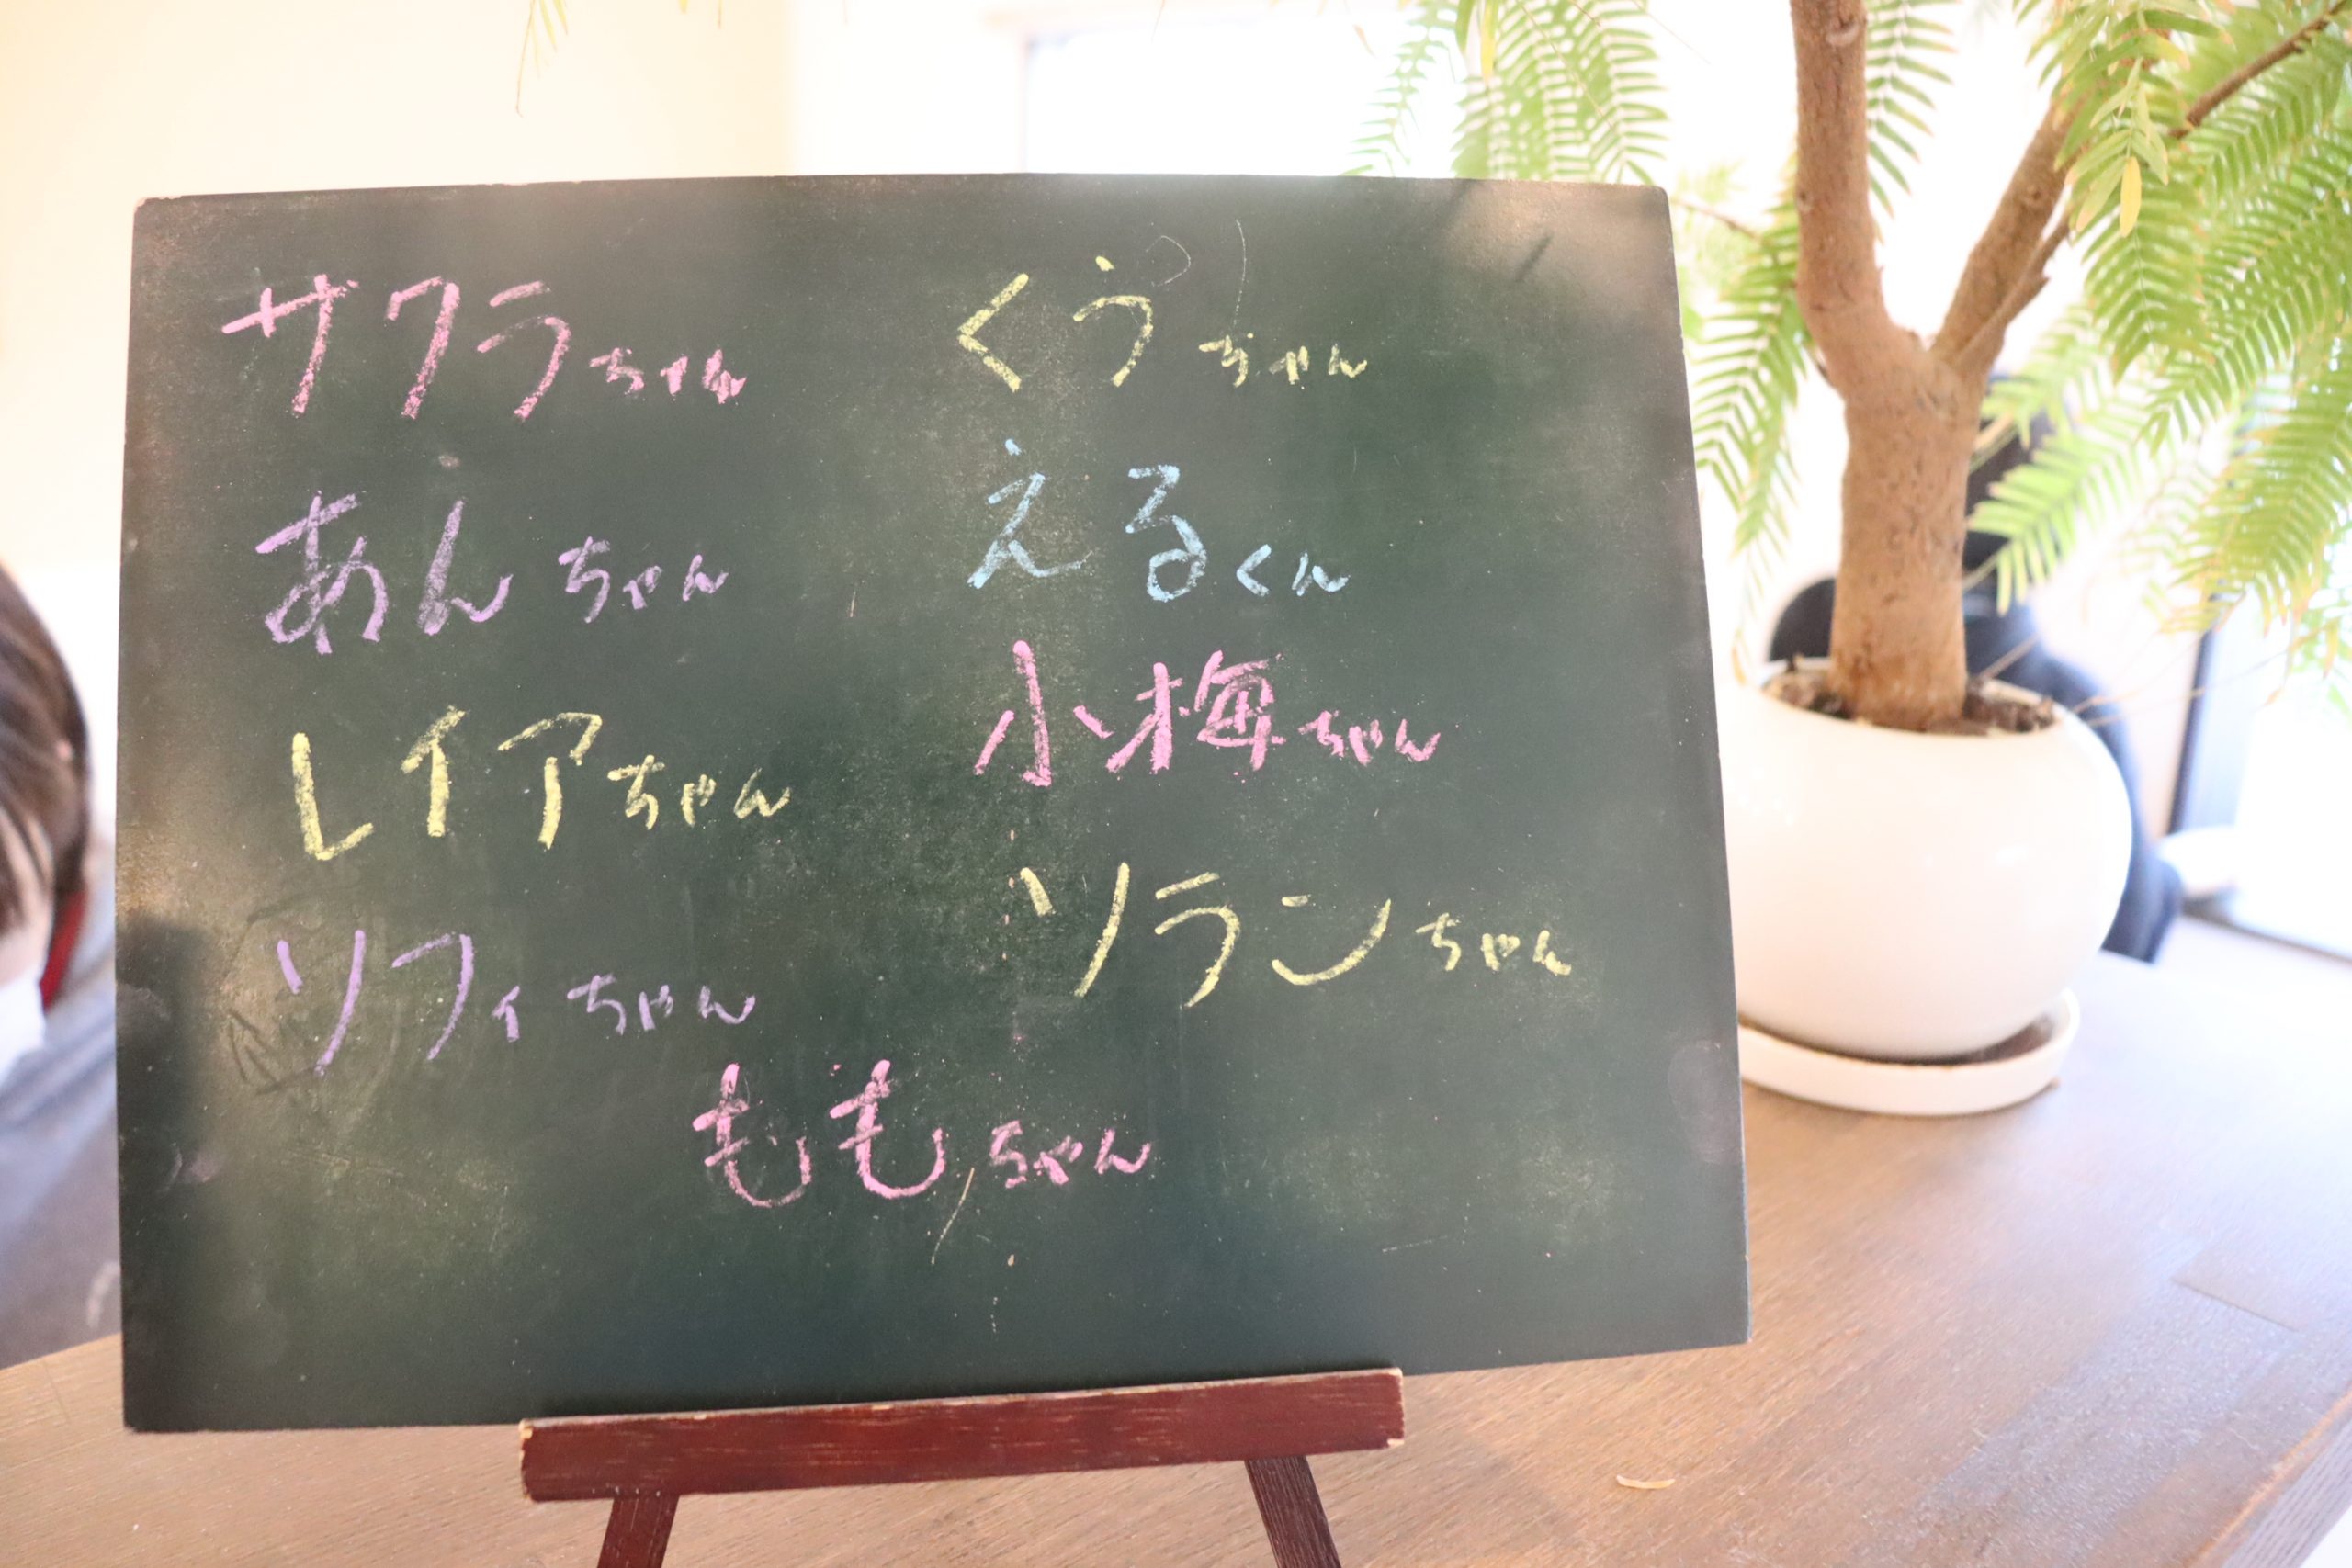 サクラちゃん
あんちゃん
レイアちゃん
ソフィちゃん
くうちゃん
えるくん
小梅ちゃん
ソランちゃん
ももちゃん